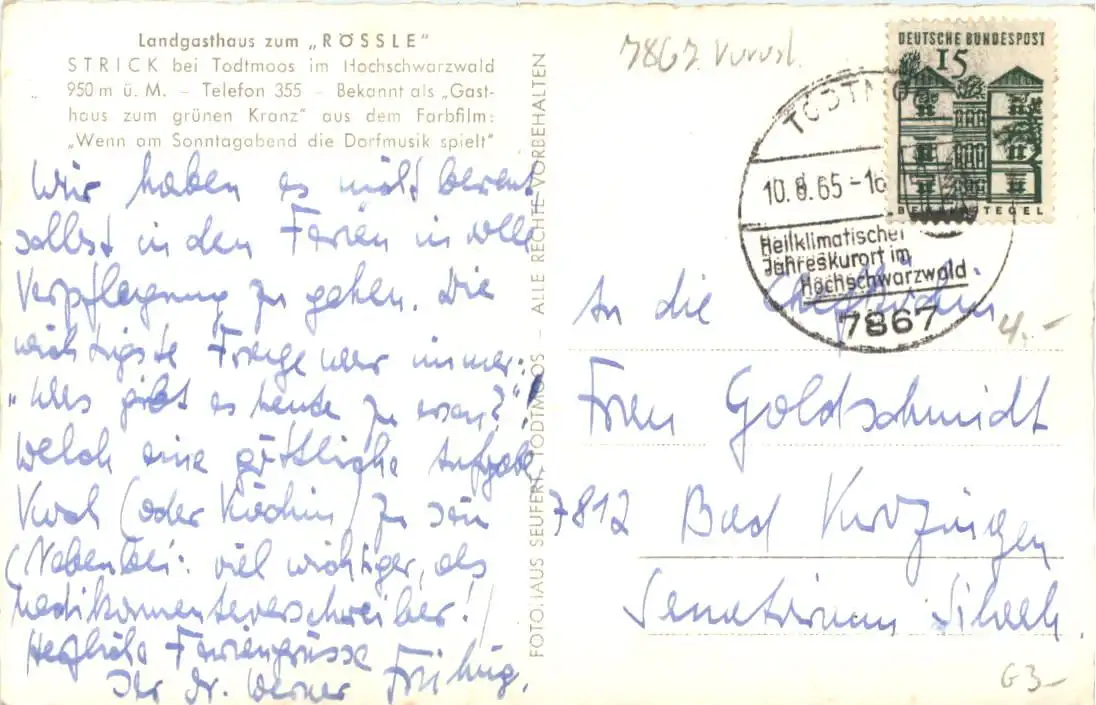 Landgasthaus zum „RÖSSLE"
STRICK bei Todtmoos im Hochschwarzwald
950 m ü. M. – Telefon 355 – Bekannt als „Gast-
haus zum grünen Kranz" aus dem Farbfilm:
„Wenn am Sonntagabend die Dorfmusik spielt"
Wir haben es nicht bereut
selbst in den Ferien in volle
Verpflegung zu gehen. Die
wichtigste Frage war immer:
„Was gibt es heute zu essen?"
Welch eine göttliche Aufgabe
Koch (oder Köchin) zu sein
(Nebenbei: viel wichtiger, als
Medikamenteverschreiber!)
Herzliche Feriengrüsse
Ihr Dr. Werner
FOTOHAUS SEUFERT, TODTMOOS – ALLE RECHTE VORBEHALTEN
7867
DEUTSCHE BUNDESPOST
15
BERLIN TEGEL
TODTMOOS
10.8.65-16
Heilklimatischer
Jahreskurort im
Hochschwarzwald
7867
An die Chefköchin
4,-
Frau Goldschmidt
7812 Bad Krozingen
Sanatorium Siloah.
G3-